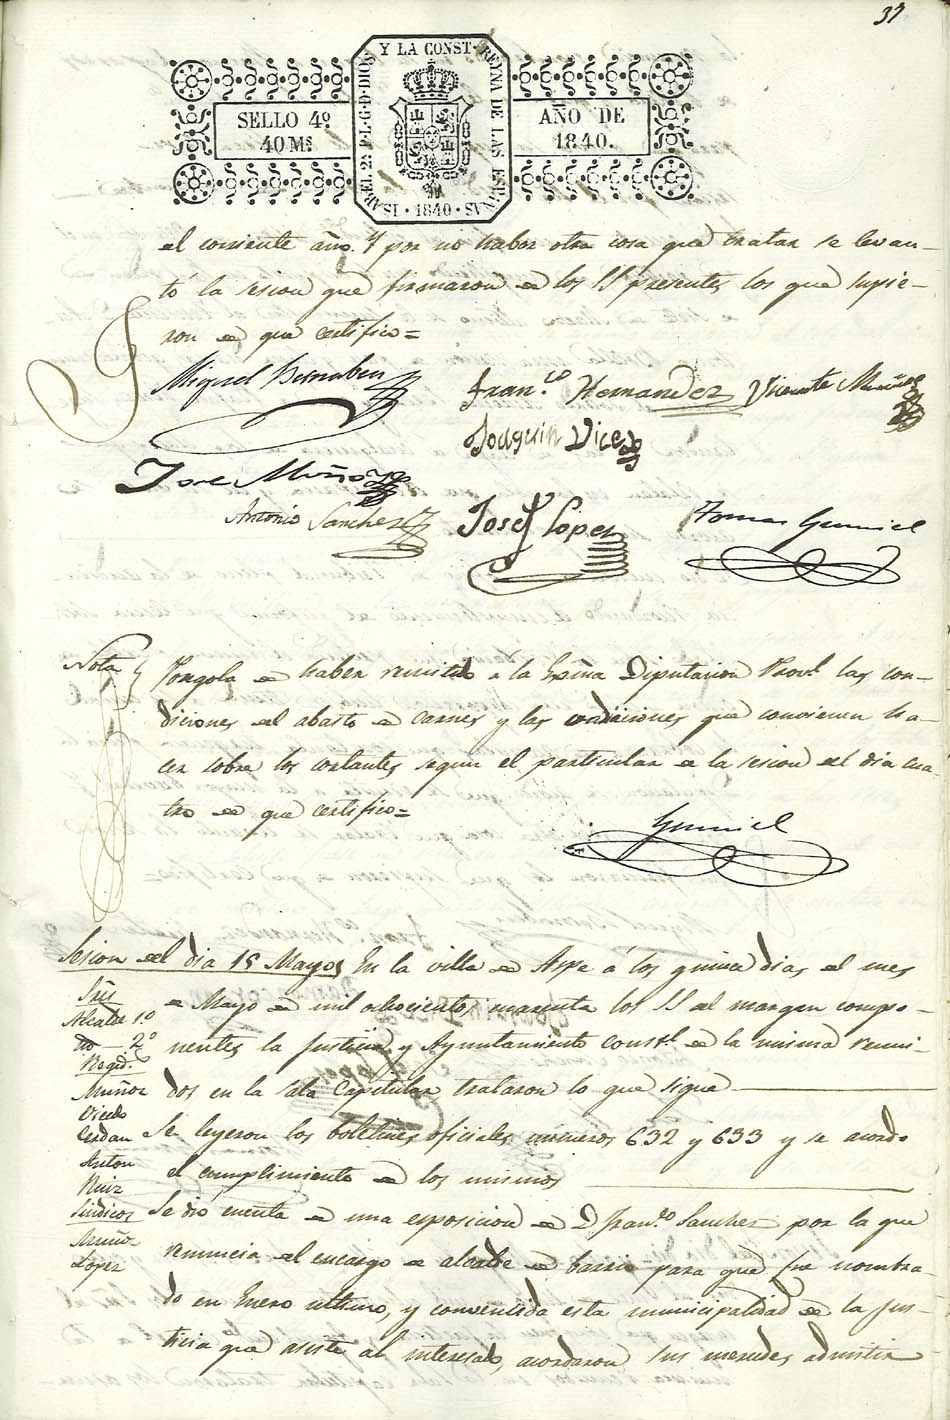 37
Y LA CONST. REYNA DE LAS ESPAÑAS
ISABEL 2ª P. L. G. D. DIOS
SELLO 4º
40 Mˢ
AÑO DE
1840.
1840
el corriente año. Y por no haber otra cosa que tratar se levan-
tó la sesion que firmaron de los SS presentes los que supie-
ron de que certifico=
Miguel
Franco Hernandez Vicente Muñoz
Joaquin
Jose Muñoz
Antonio Sanchez
Josef Lopez
Tomas Gumiel
Nota
Pongola de haber remitido á la Exma Diputacion Provl las con-
diciones del abasto de carnes y las condiciones que convienen ha-
cer sobre los cortantes segun el particular de la sesion del dia cua-
tro de que certifico=
Gumiel
Sesion del dia 15 Mayo
En la villa de Aspe á los quince dias del mes
de Mayo de mil ochocientos cuarenta los SS del margen compo-
nentes la Justicia y Ayuntamiento constl de la misma reuni-
dos en la sala Capitular trataron lo que sigue
Se leyeron los boletines oficiales numeros 632 y 633 y se acordo
el cumplimiento de los mismos
Se dió cuenta de una esposicion de D. Franco Sanchez por la que
renuncia el encargo de alcalde de barrio para que fue nombra-
do en Enero ultimo, y convencida esta municipalidad de la jus-
ticia que asiste al interesado, acordaron sus mercedes admitir
Sres
Alcalde 1º
do 2º
Regid.
Muñoz
Cerdan
Anton
Ruiz
Sindicos
Muñoz
Lopez